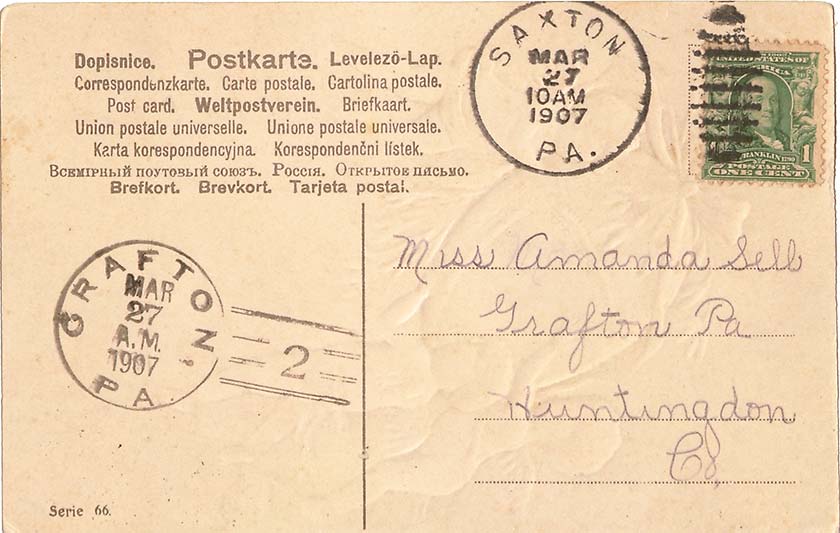 Dopisnice. Postkarte. Levelező-Lap.
Correspondenzkarte. Carte postale. Cartolina postale.
Post card. Weltpostverein. Briefkaart.
Union postale universelle. Unione postale universale.
Karta korespondencyjna. Korespondenčni listek.
Всемірный почтовый союзъ. Россія. Открытое письмо.
Brefkort. Brevkort. Tarjeta postal.
SAXTON
MAR
27
10AM
1907
PA.
UNITED STATES OF
AMERICA
FRANKLIN 1790
1
POSTAGE
ONE CENT
GRAFTON
MAR
27
A.M.
1907
PA
2
Miss Amanda Sell
Grafton Pa
Huntingdon
Co.
Serie 66.